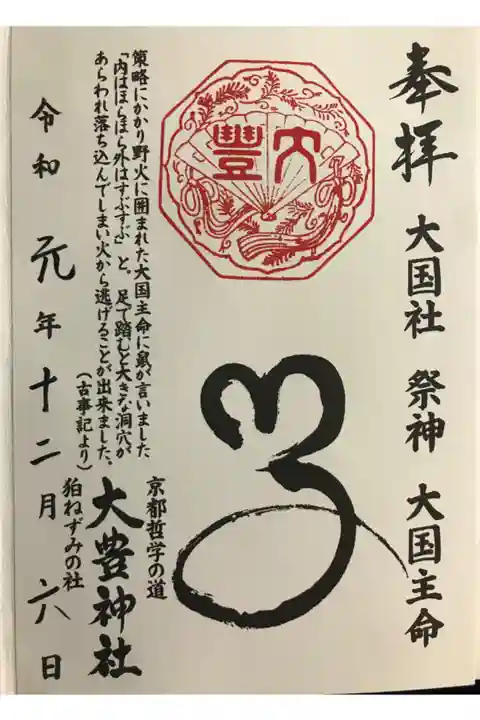 奉拝 大国社 祭神 大国主命
大豊
子
策略にかかり野火に囲まれた大国主命に鼠が言いました
「内はほらほら外はすぶすぶ」と。足で踏むと大きな洞穴が
あらわれ落ち込んでしまい火から逃げることが出来ました。
(古事記より)
京都哲学の道
大豊神社
狛ねずみの社
令和元年十二月六八日